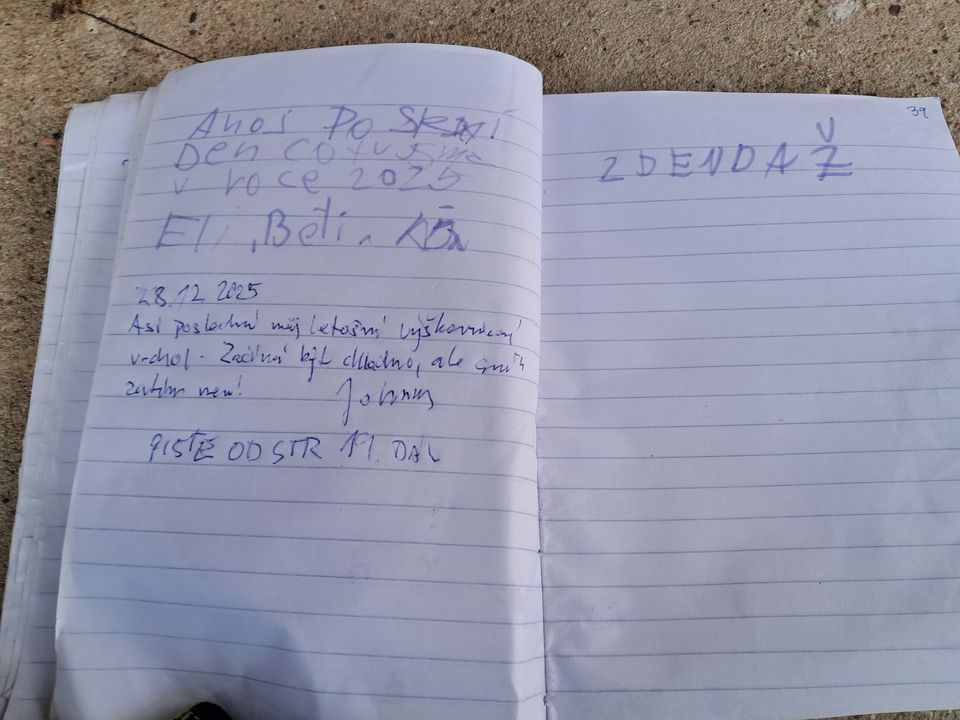 Ahoj Po
Den co tu jsme
v roce 2025
Eli, Beti,
28.12.2025
Asi poslední můj letošní výškovnicový
vrchol. Začíná být chladno, ale sníh
zatím není!
PIŠTE OD STR 19. DÁL
39
ZDENDA Ž